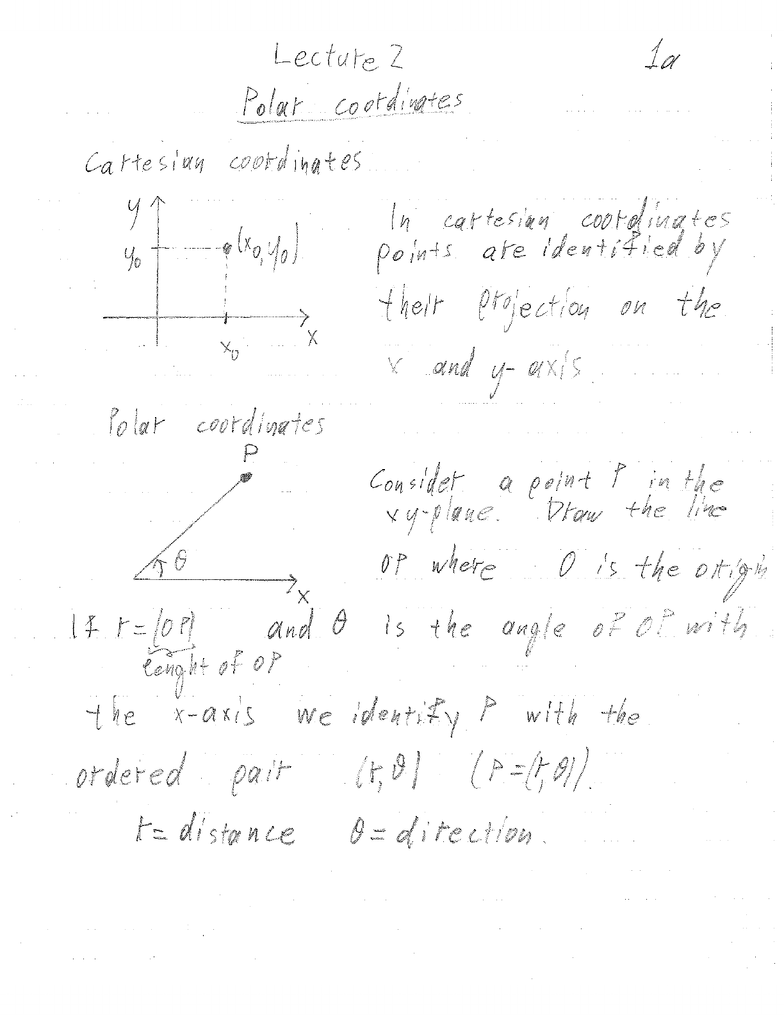 Lecture 2
1a
Polar coordinates
Cartesian coordinates
y
y₀
(x₀,y₀)
x₀
x
In cartesian coordinates
points are identified by
their projection on the
x and y-axis.
Polar coordinates
P
θ
x
Consider a point P in the
xy-plane. Draw the line
OP where O is the origin
If r=|OP| and θ is the angle of OP with
lenght of OP
the x-axis we identify P with the
ordered pair (r,θ) (P=(r,θ)).
r= distance θ= direction.